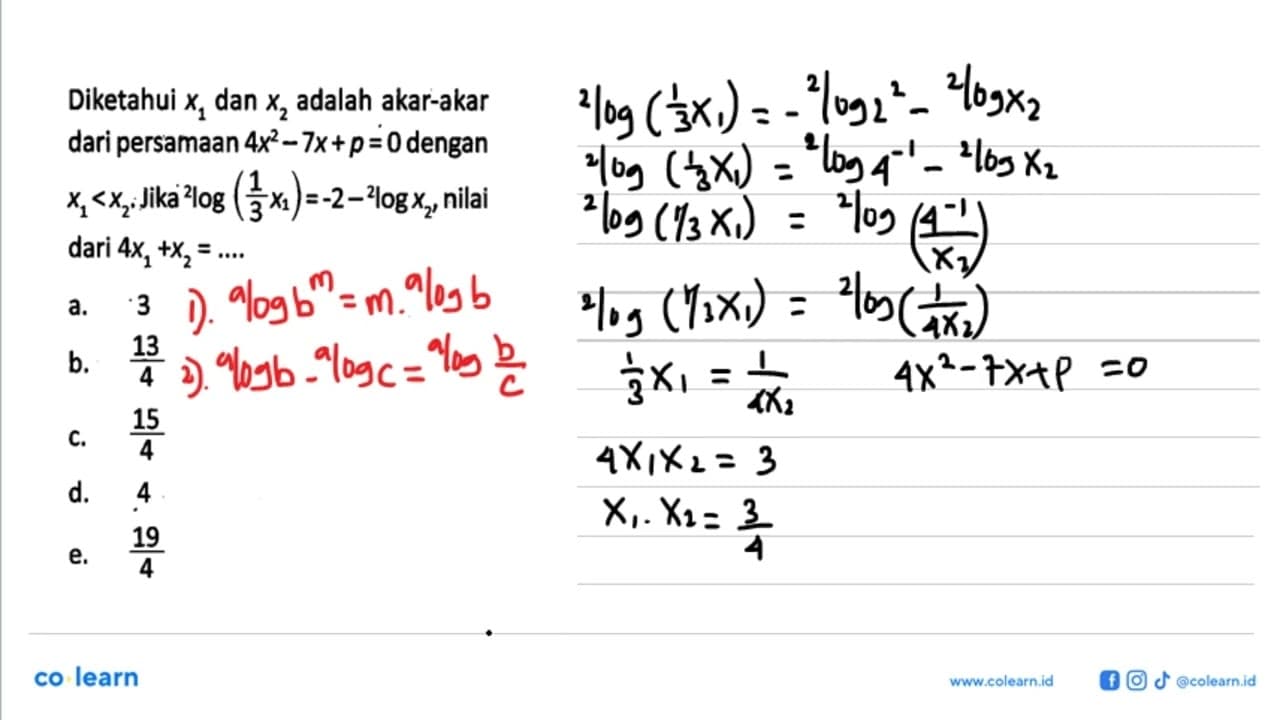 Diketahui x₁ dan x₂ adalah akar-akar
dari persamaan 4x² – 7x + p = 0 dengan
x₁ < x₂. Jika ²log (1/3 x₁) = -2 – ²log x₂, nilai
dari 4x₁ + x₂ = ....
a. 3
b. 13/4
c. 15/4
d. 4
e. 19/4
1). ᵃlog bᵐ = m. ᵃlog b
2). ᵃlog b - ᵃlog c = ᵃlog b/c
²log (1/3 x₁) = - ²log 2² - ²log x₂
²log (1/3 x₁) = ²log 4⁻¹ - ²log x₂
²log (1/3 x₁) = ²log (4⁻¹/x₂)
²log (1/3 x₁) = ²log (1/4x₂)
1/3 x₁ = 1/4x₂
4x² - 7x + p = 0
4x₁x₂ = 3
x₁. x₂ = 3/4
co learn
www.colearn.id
@colearn.id